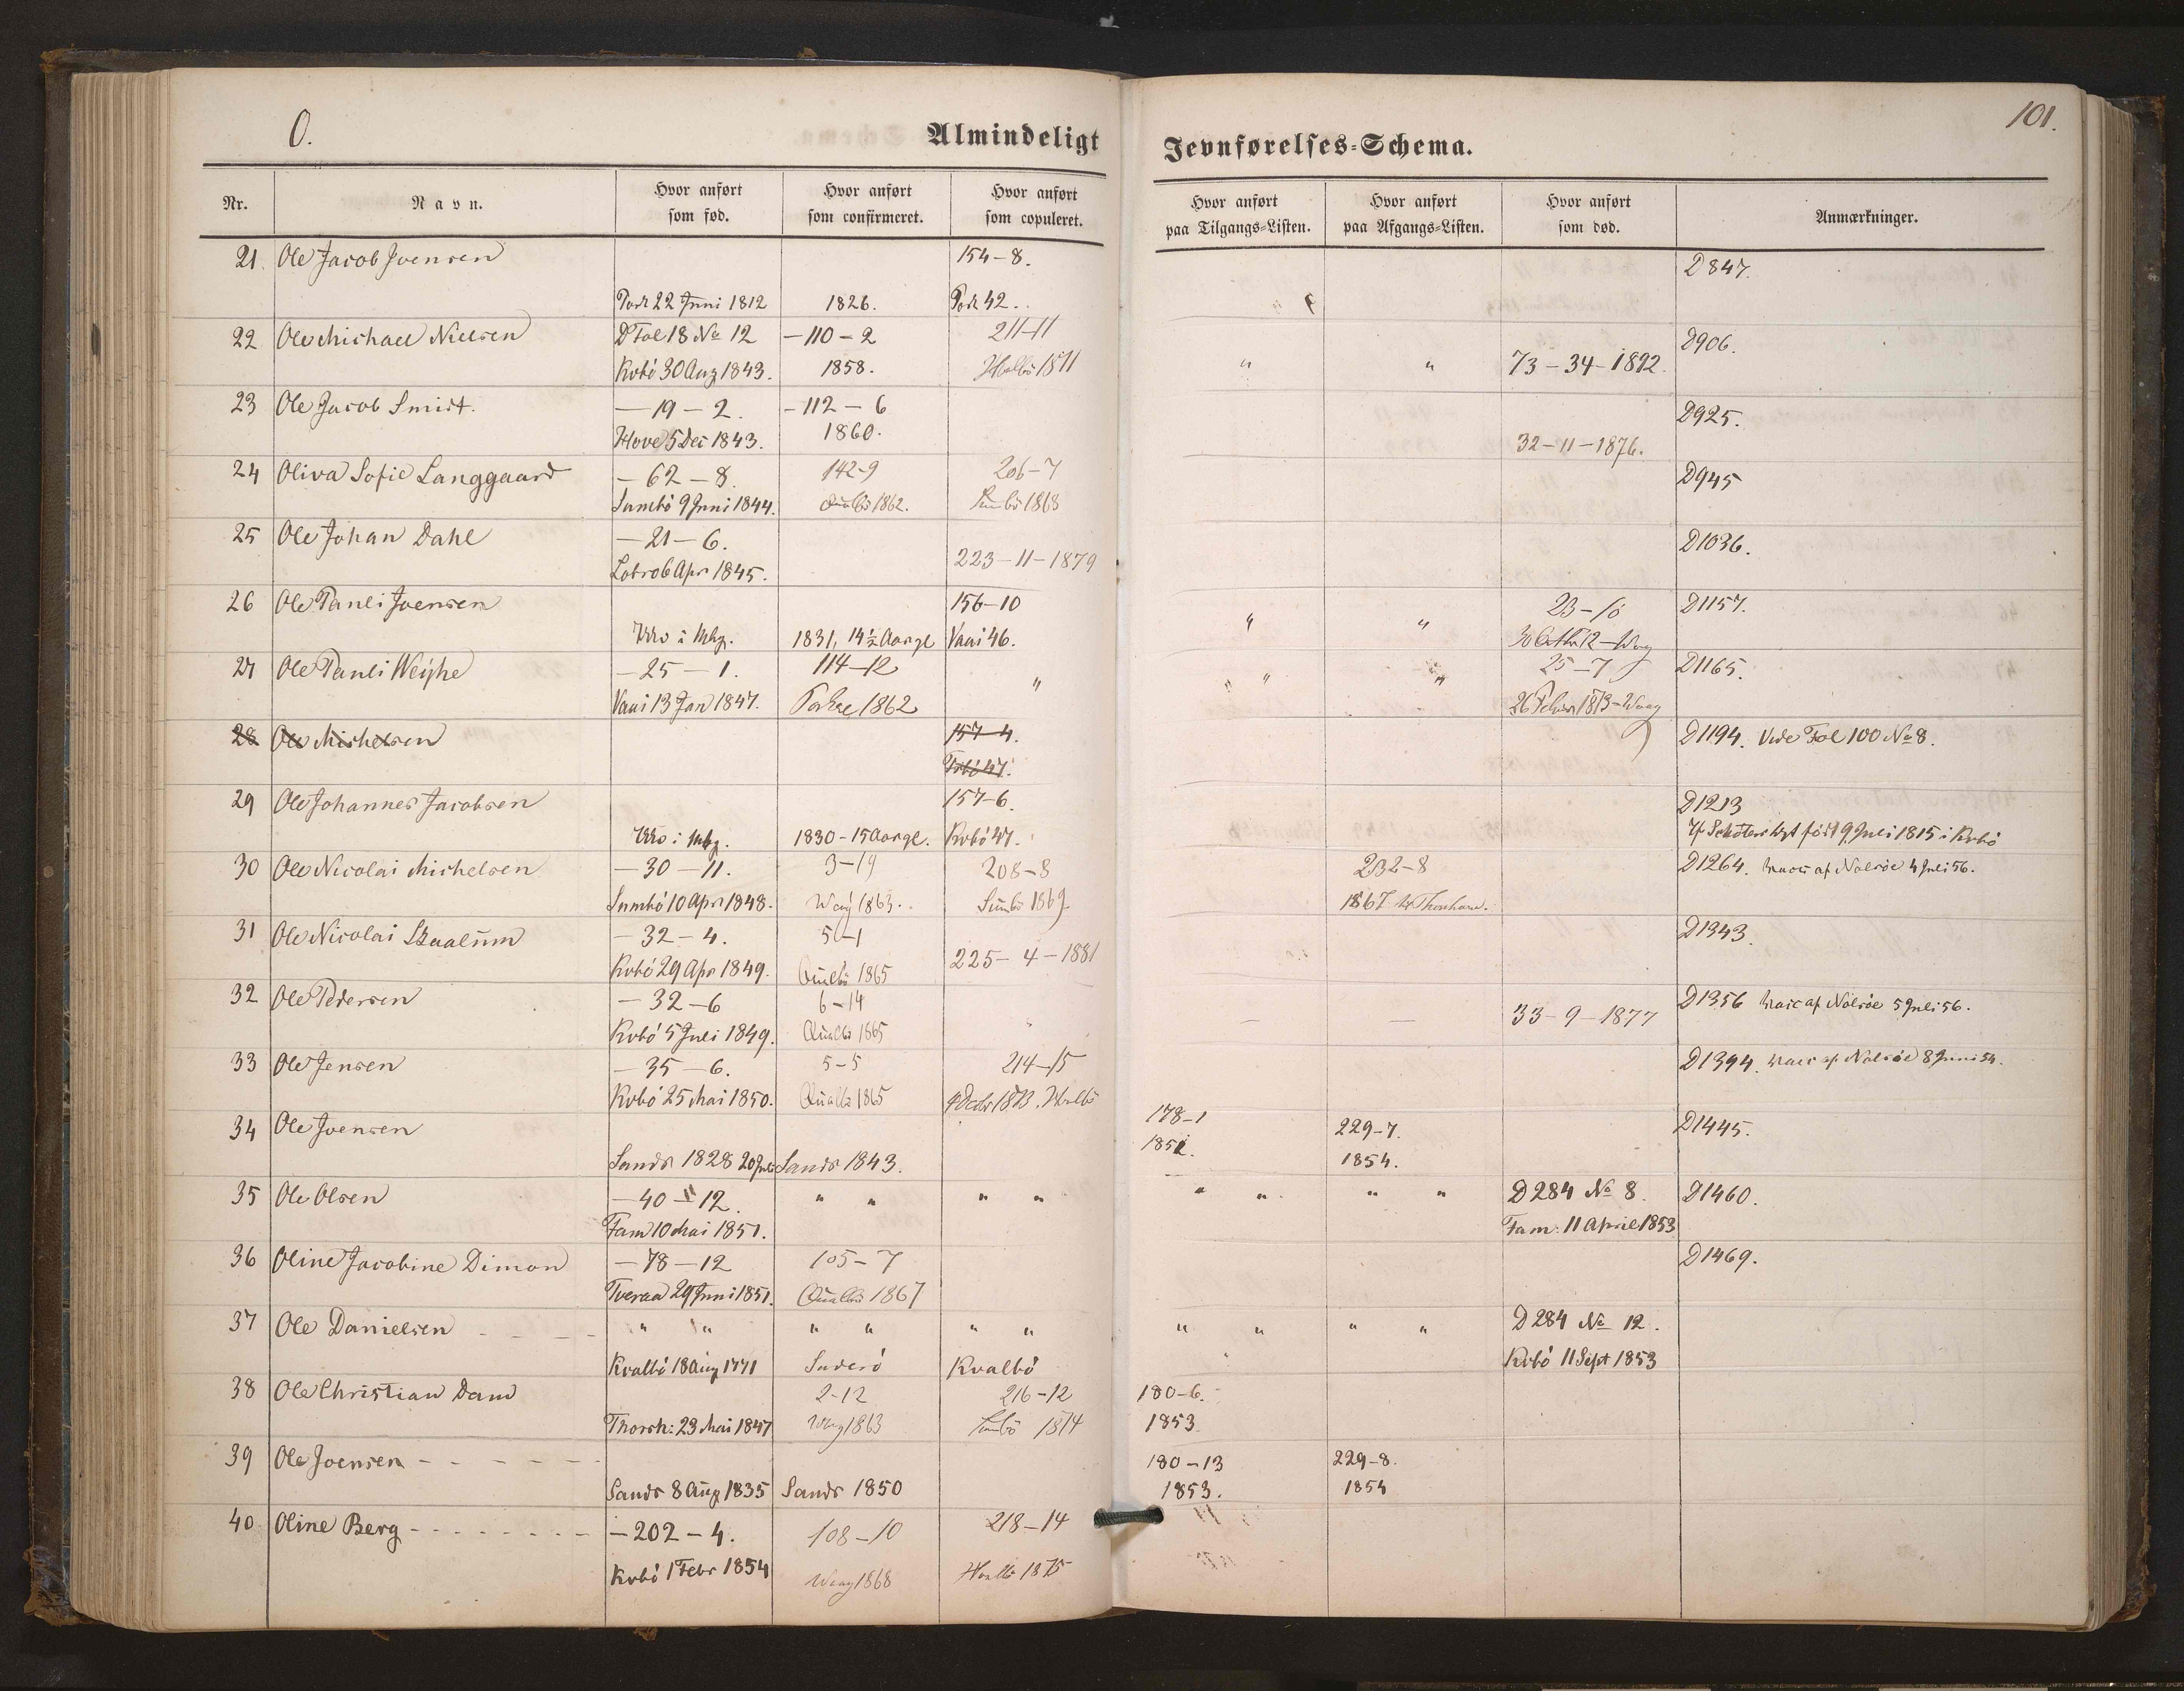 O.
Almindeligt
Jevnførelses-Schema.
101.
Nr.
Navn.
Hvor anført som fød.
Hvor anført som confirmeret.
Hvor anført som copuleret.
Hvor anført paa Tilgangs-Listen.
Hvor anført paa Afgangs-Listen.
Hvor anført som død.
Anmærkninger.
21 Ole Jacob Joensen 154-8. D847.
22 Juni 1812 1826. 42.
22 Ole Michael Nielsen D Fol 18 No 12 -110-2 211-11 D906.
Kvbö 30 Aug 1843. 1858. 1871 " " 73-34-1892.
23 Ole Jacob Smidt. -19-2. -112-6 D925.
Hove 5 Dec 1843. 1860. 32-11-1876.
24 Oliva Sofie Langgaard -62-8. 142-9 206-7 D945
Sumbö 9 Juni 1844. Qualbö 1862. Sumbö 1868
25 Ole Johan Dahl -21-6. 223-11-1879 D1036.
6 Apr 1845.
26 Ole Pauli Joensen 156-10 " " 23-10 D1157.
1831, 14½ Aargl Vaai 46.
27 Ole Pauli Weyhe -25-1. 114-12 " " " " 25-7 D1165.
Vaai 13 Jan 1847. 1862 1873-Waag
28 Ole Michelsen 157-4. D1194. Vide Fol 100 No 8.
47.
29 Ole Johannes Jacobsen 157-6. D1213
1830-15 Aargl. Kvbö 47. födt 9 Juli 1815 i Kvbö
30 Ole Nicolai Michelsen -30-11. 3-19 208-8 232-8 D1264. Vacc af Nolsöe 4 Juli 56.
Sumbö 10 Apr 1848. Waag 1863. Sumbö 1869. 1867 Thorshavn.
31 Ole Nicolai Skaalum -32-4. 5-1 225-4-1881 D1343.
Kvbö 29 Apr 1849. Qualbö 1865
32 Ole Pedersen -32-6 6-14 33-9-1877 D1356 Vacc af Nolsöe 5 Juli 56.
Kvbö 5 Juli 1849. Qualbö 1865
33 Ole Jensen -35-6. 5-5 214-15 D1394. Vacc af Nolsöe 8 Juni 54.
Kvbö 25 Mai 1850. Qualbö 1865 1873. Hvalbö
34 Ole Joensen 178-1 229-7. D1445.
Sands 1828 20 Juli Sands 1843. 1852. 1854.
35 Ole Olsen -40-12. " " " " " " " " D284 No 8. D1460.
Fam 10 Mai 1851. Fam: 11 April 1853
36 Oline Jacobine Dimon -78-12 105-7 D1469.
Tveraa 29 Juni 1851. Qualbö 1867
37 Ole Danielsen - - - - " " " " " " " " " " D284 No 12.
Kvalbö 18 Aug 1771 Suderö Kvalbö Kvbö 11 Sept 1853
38 Ole Christian Dam 2-12 216-12 180-6.
Thorsh: 23 Mai 1847 Waag 1863 Sumbö 1874 1853
39 Ole Joensen - - - - - - 180-13 229-8.
Sands 8 Aug 1835 Sands 1850 1853. 1854
40 Oline Berg - - - - - - - - -202-4. 108-10 218-14
Kvbö 1 Febr 1854 Waag 1868 Hvalbö 1875